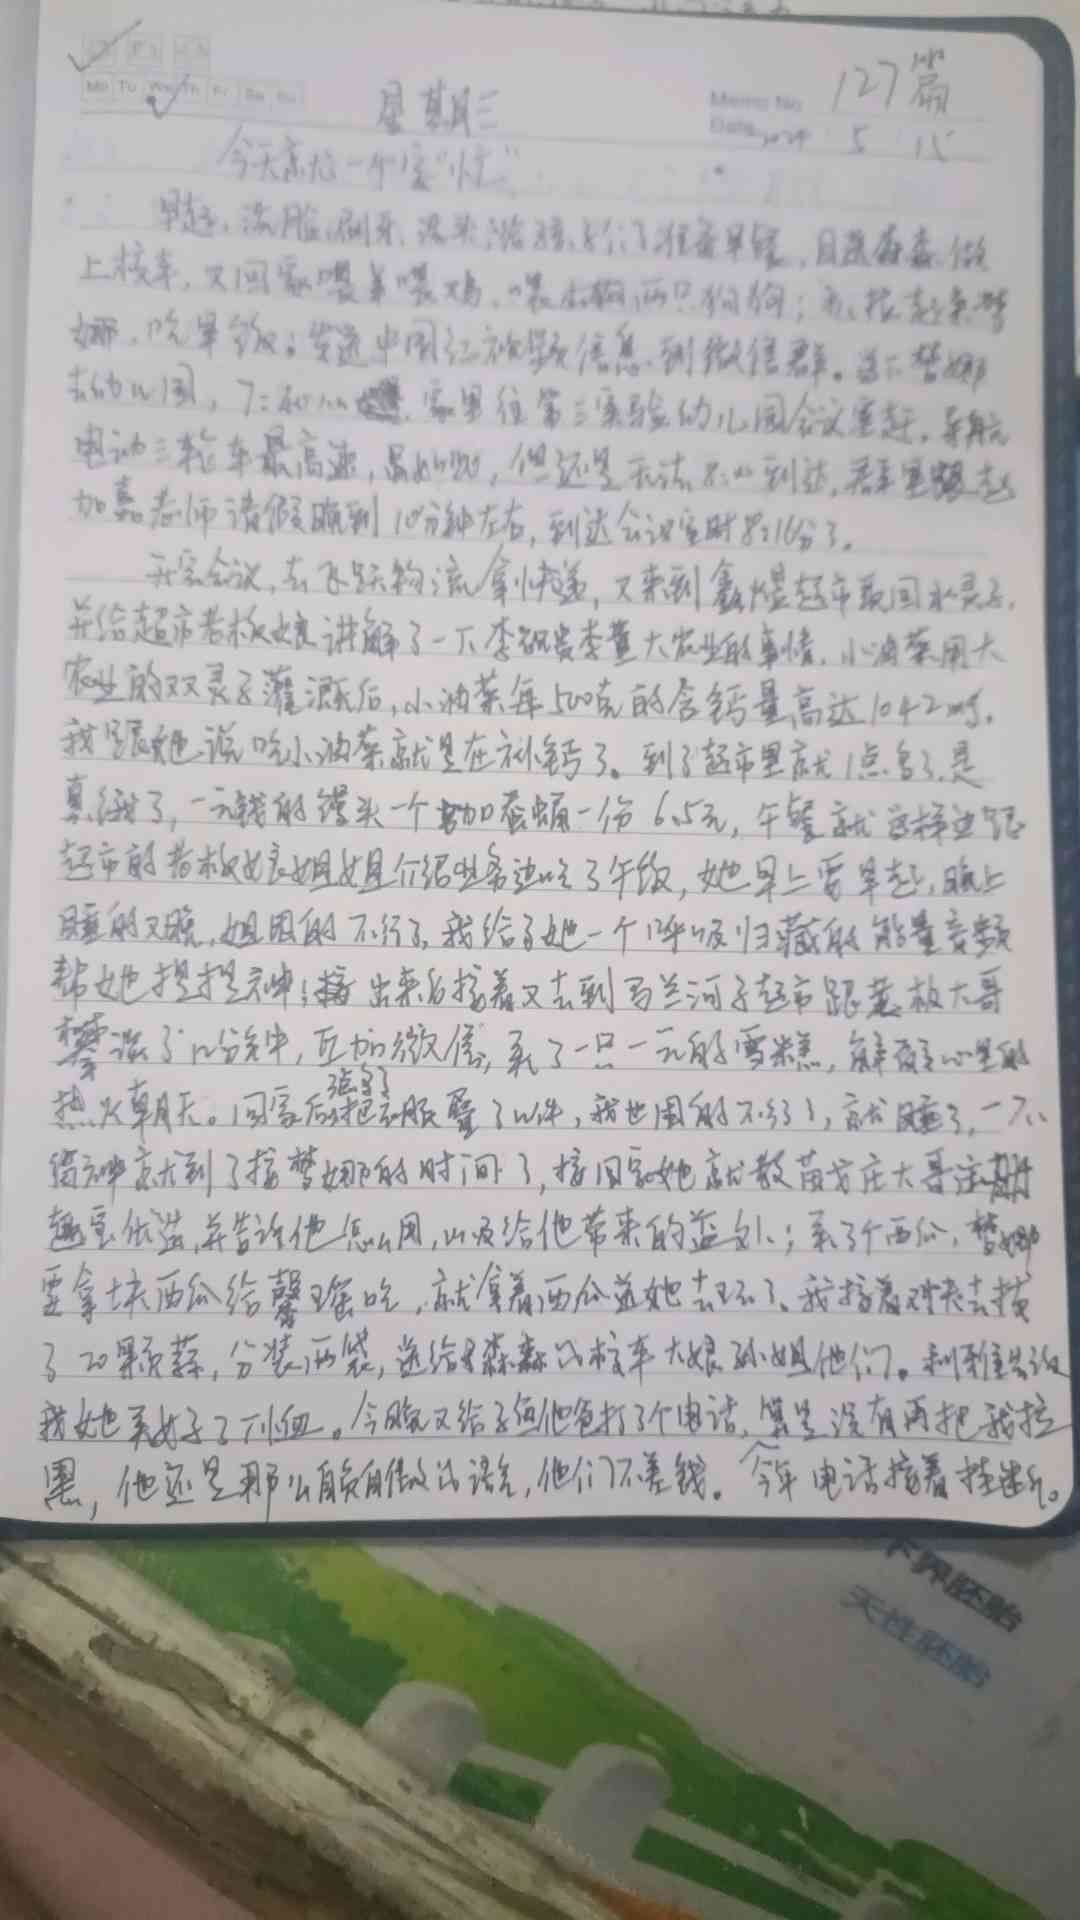 127篇
Mo Tu We Th Fr Sa Su
Memo No.
Date 2024 5 15
星期三
今天就是一个字“忙”
早起，洗脸、刷牙、梳头、给孩子们准备早餐，目送森森做
上校车，又回家喂羊喂鸡，喂两只狗狗；叫起来梦
娜，吃早饭。发送中国红视频信息到微信群。送下梦娜
去幼儿园，7: 家里往第三实验幼儿园会议室赶，导航
电动三轮车最高速，虽如此，但还是无法 到达，群里跟赵
加嘉老师请假晚到10分钟左右，到达会议室时8:16分了。
开完会议，去飞跃物流拿快递，又来到鑫煜超市取回水灵子，
并给超市老板娘讲解了一下李 贵李董大农业的事情，小油菜用大
农业的双灵子灌溉后，小油菜每500克的含钙量高达1042mg，
我跟她说吃小油菜就是在补钙了。到了超市里就1点多了，是
真饿了，一元钱的馒头一个加蚕蛹一份6.5元，午餐就这样边跟
超市的老板娘姐姐介绍业务边吃了午饭，她早上要早起，晚上
睡的又晚，她困的不行了，我给了她一个呼吸归藏的能量音频
帮她提提神；出来后接着又去到马兰河子超市跟老板大哥
谈了 分钟，互加微信，买了一只一元的雪糕，解解心里的
热火朝天。回家后把衣服叠了 件，我也困的不行了，就睡了，一下
留神就到了接梦娜的时间了，接回家她就教苗 庄大哥注册
趣 ，并告诉他怎么用，以及给他带来的益处；买了个西瓜，梦娜
要拿块西瓜给馨瑶吃，就拿着西瓜送她去玩了。我接着对夹去拔
了20颗蒜，分装两袋，送给森森的校车大娘孙姐他们。利 告诉
我她买好了 。今晚又给子恒他爸打了个电话，算是没有再把我拉
黑，他还是那么自负自傲的语言，他们不差钱。今年电话接着挂断。
天性胚胎